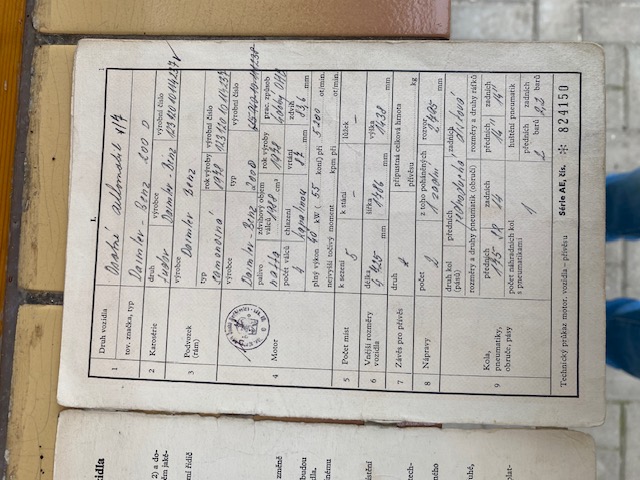 I.
1 Druh vozidla Osobní automobil
tov. značka, typ Daimler Benz 200 D
2 Karosérie druh výrobce výrobní číslo
Daimler - Benz
3 Podvozek (rám) výrobce
Daimler Benz
typ rok výroby výrobní číslo
1978
4 Motor výrobce typ
Daimler - Benz 200 D
palivo zdvihový objem válců rok výroby prac. způsob
nafta 1988 cm³ 1978
počet válců chlazení vrtání zdvih
4 kapalinou 87 mm 83,6 mm
plný výkon 40 kW ( 55 koní) při 5200 ot/min.
nejvyšší točivý moment kpm při ot/min.
5 Počet míst k sezení 5 k stání – lůžek –
6 Vnější rozměry vozidla délka mm šířka 1786 mm výška 1438 mm
7 Závěs pro přívěs druh přípustná celková hmota přívěsu kg
8 Nápravy počet 2 z toho poháněných 1 zadní rozvor mm
9 Kola, pneumatiky, obruče, pásy
druh kol (pásů) předních zadních
rozměry a druhy pneumatik (obručí) rozměry a druhy ráfků
předních zadních předních zadních
175 SR 14 14" 14"
počet náhradních kol s pneumatikami 1
huštění pneumatik
předních barů zadních barů
2 2,2
Technický průkaz motor. vozidla - přívěsu Série AE, čís. ✻ 824150
zidla
2) a do-
ém jaké-
ení řidič
změně
budou
idla.
nnému
ístění
tech-
ného
uhé,
plat-